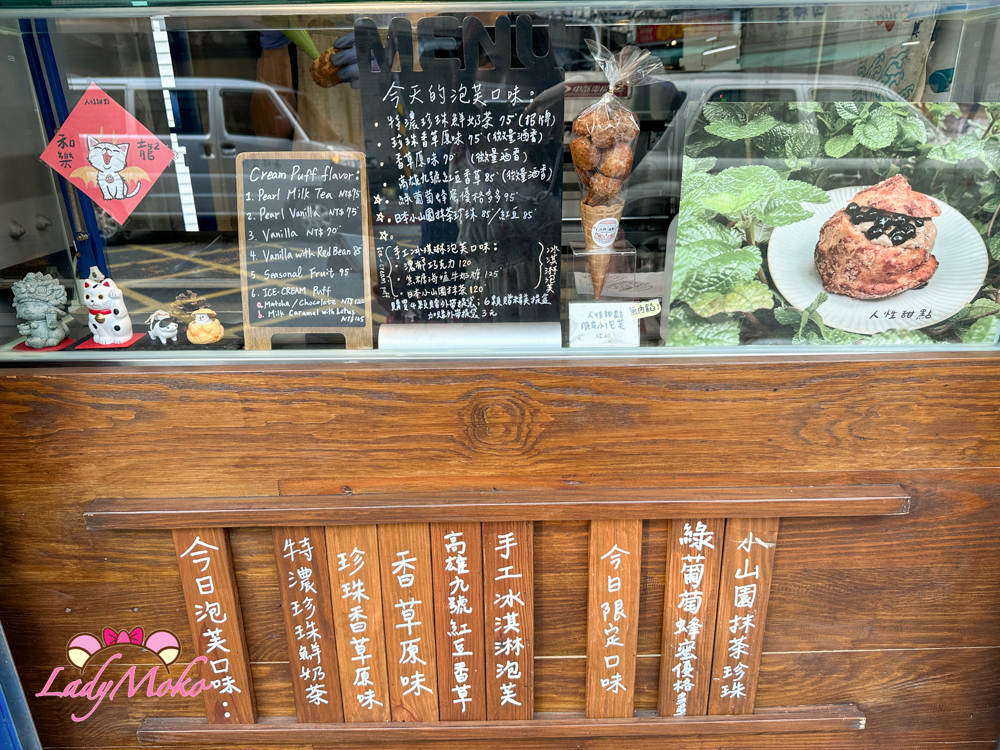 MENU
人性甜點
和樂
龍
Cream Puff flavor:
1. Pearl Milk Tea NT$75
2. Pearl Vanilla NT$75
3. Vanilla NT$70
4. Vanilla with Red Bean 85
5. Seasonal Fruit 95
6. ICE-CREAM Puff
a. Matcha/Chocolate NT$120
b. Milk Caramel with Lotus NT$125
今天的泡芙口味:
特濃珍珠鮮奶茶 75 (招牌)
珍珠香草原味 75 (微量酒香)
香草原味 70 (微量酒香)
高雄九號紅豆香草 85 (微量酒香)
綠葡萄蜂蜜優格多多 95
日本小山園抹茶珍珠 85 / 紅豆 85
手工冰淇淋泡芙口味:
濃醇巧克力 120
焦糖海鹽牛奶糖 125
日本小山園抹茶 120
冰淇淋泡芙
加購外帶提袋 3元
人性甜點
人性甜點
今日泡芙口味:
特濃珍珠鮮奶茶
珍珠香草原味
香草原味
高雄九號紅豆香草
手工冰淇淋泡芙
今日限定口味
綠葡萄蜂蜜優格多多
小山園抹茶珍珠
LadyMoko